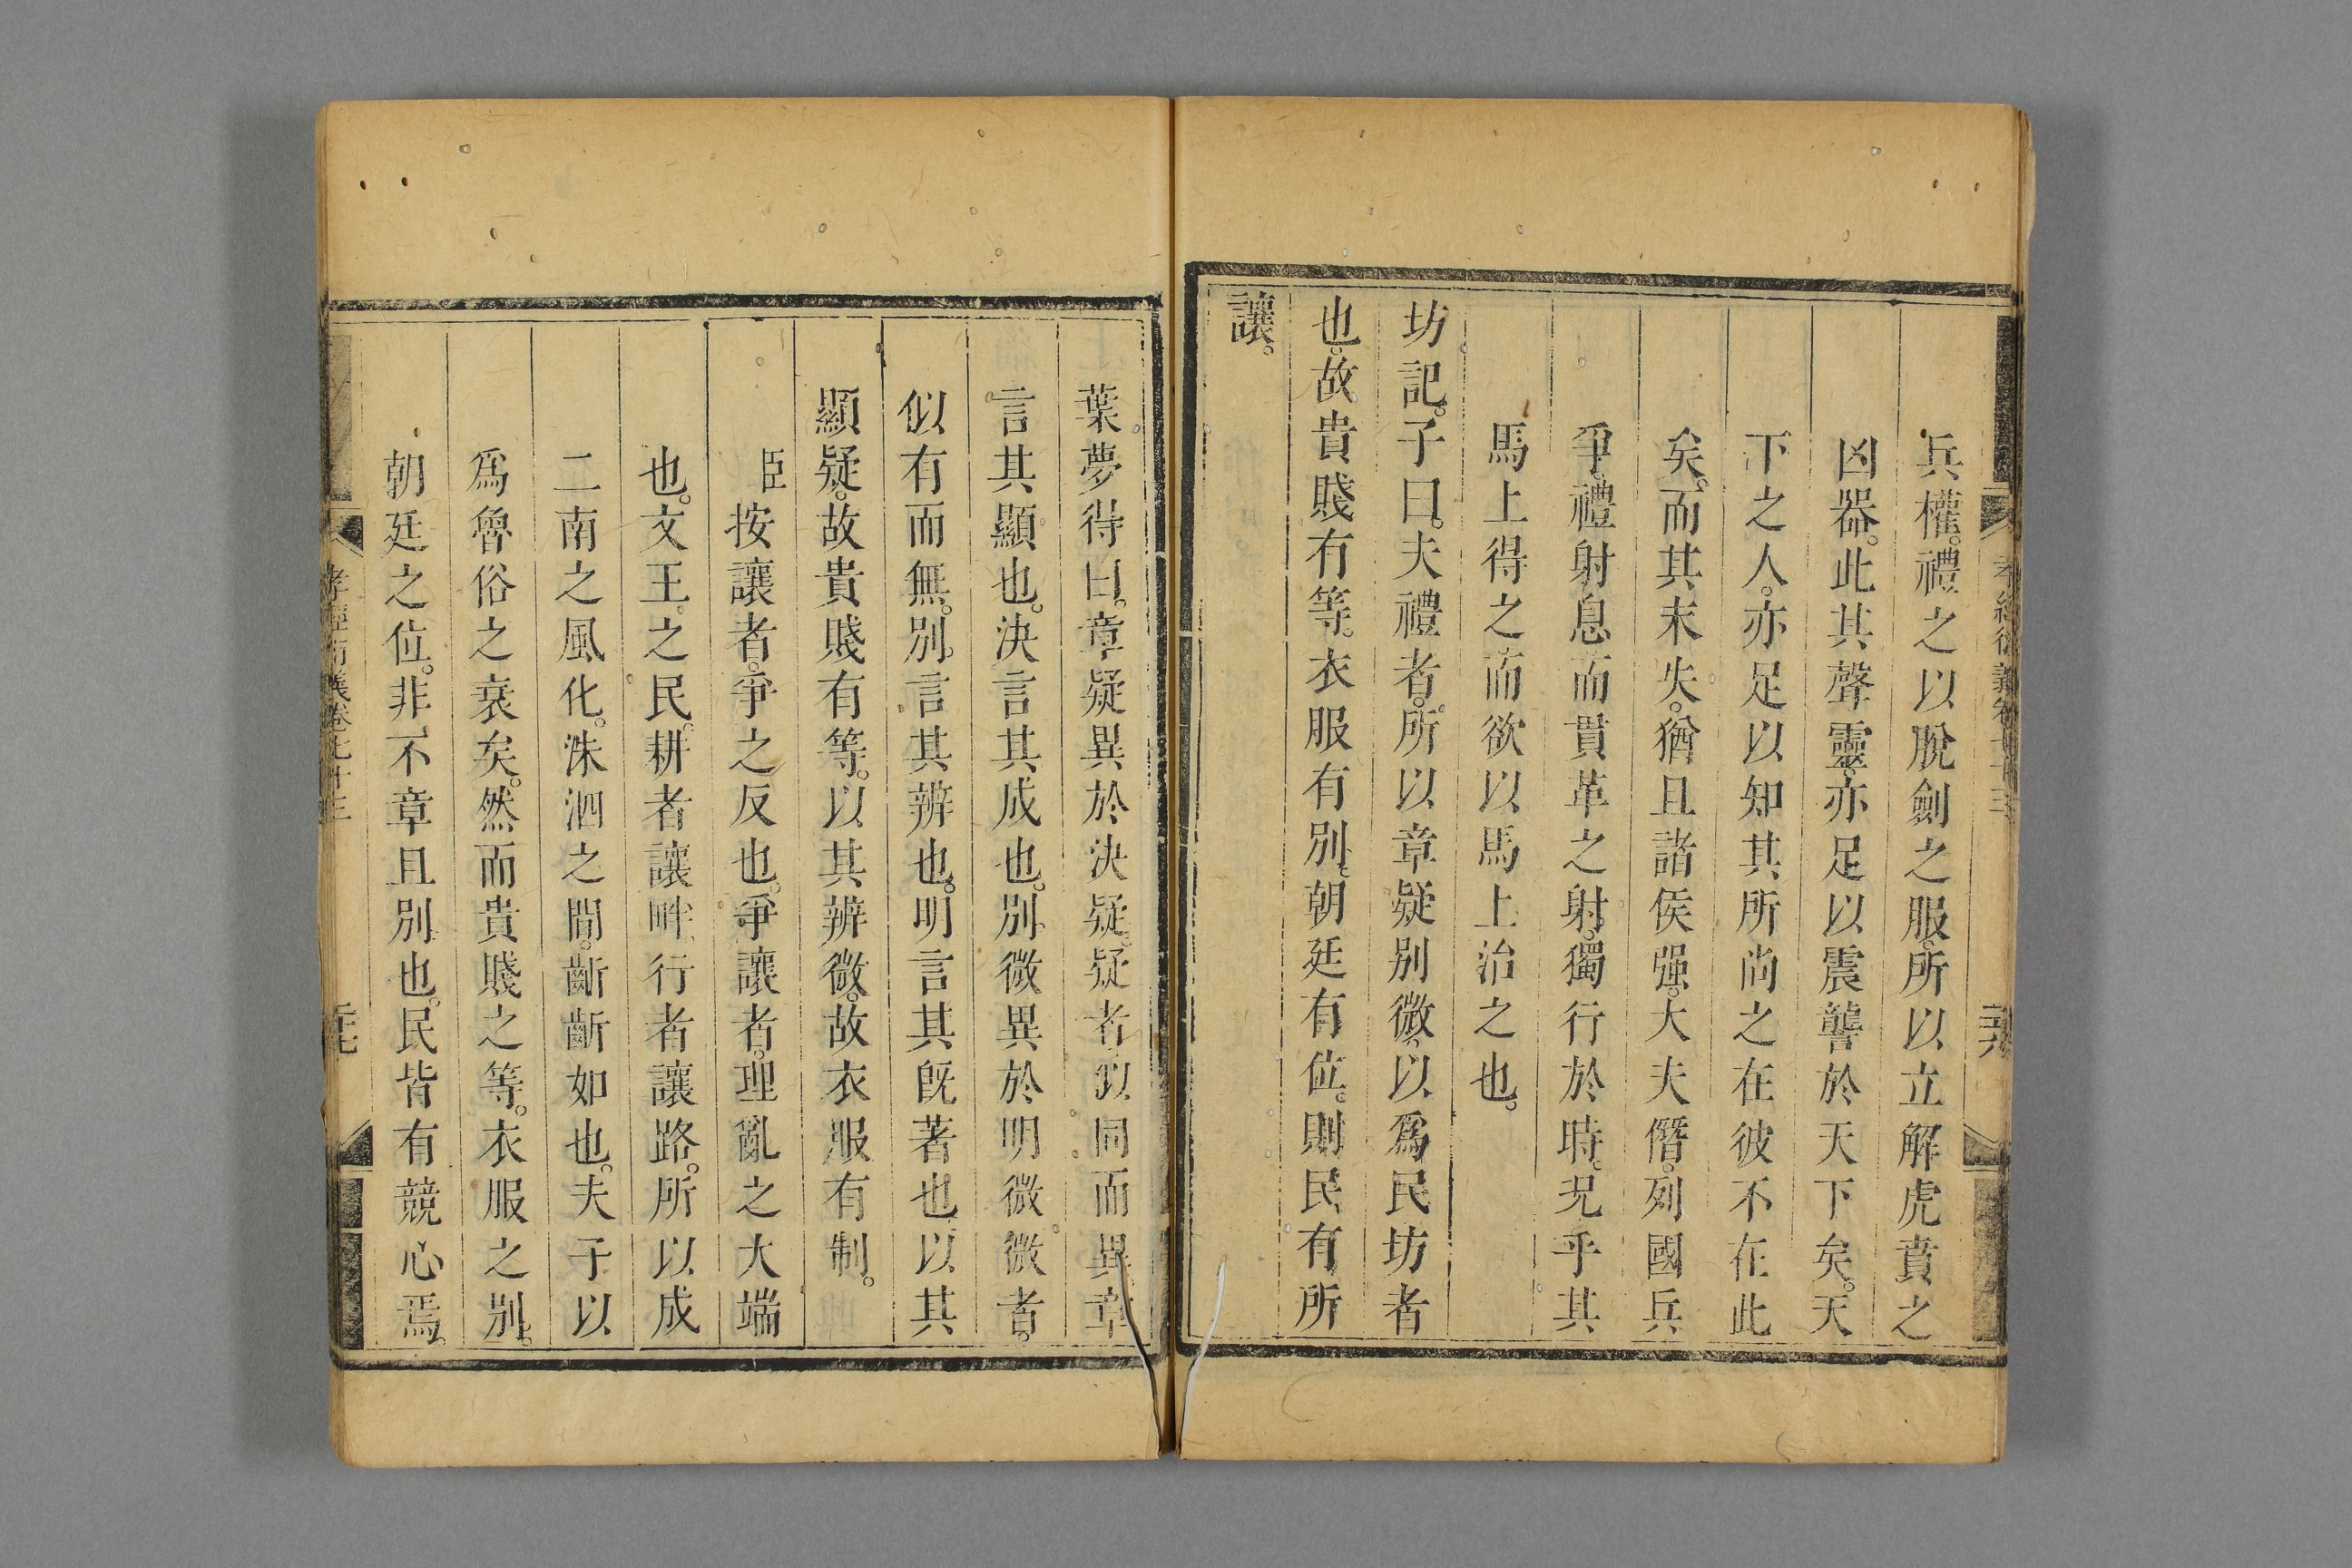 兵權。禮之以脫劍之服。所以立解虎賁之
凶器。此其聲靈。亦足以震讋於天下矣。天
下之人。亦足以知其所尚之在彼不在此
矣。而其末失。猶且諸侯强。大夫僭。列國兵
爭。禮射息而貫革之射。獨行於時。況乎其
馬上得之而欲以馬上治之也。
坊記。子曰。夫禮者。所以章疑別微。以爲民坊者
也。故貴賤有等。衣服有別。朝廷有位。則民有所
讓。
葉夢得曰。章疑異於決疑。疑者似同而異。章
言其顯也。決言其成也。別微異於明微。微者。
似有而無。別言其辨也。明言其旣著也。以其
顯疑。故貴賤有等。以其辨微。故衣服有制。
臣按讓者。爭之反也。爭讓者。理亂之大端
也。文王之民。耕者讓畔。行者讓路。所以成
二南之風化。洙泗之間。齗齗如也。夫子以
爲魯俗之衰矣。然而貴賤之等。衣服之別。
朝廷之位。非不章且別也。民皆有競心焉。
孝經衍義卷七十三